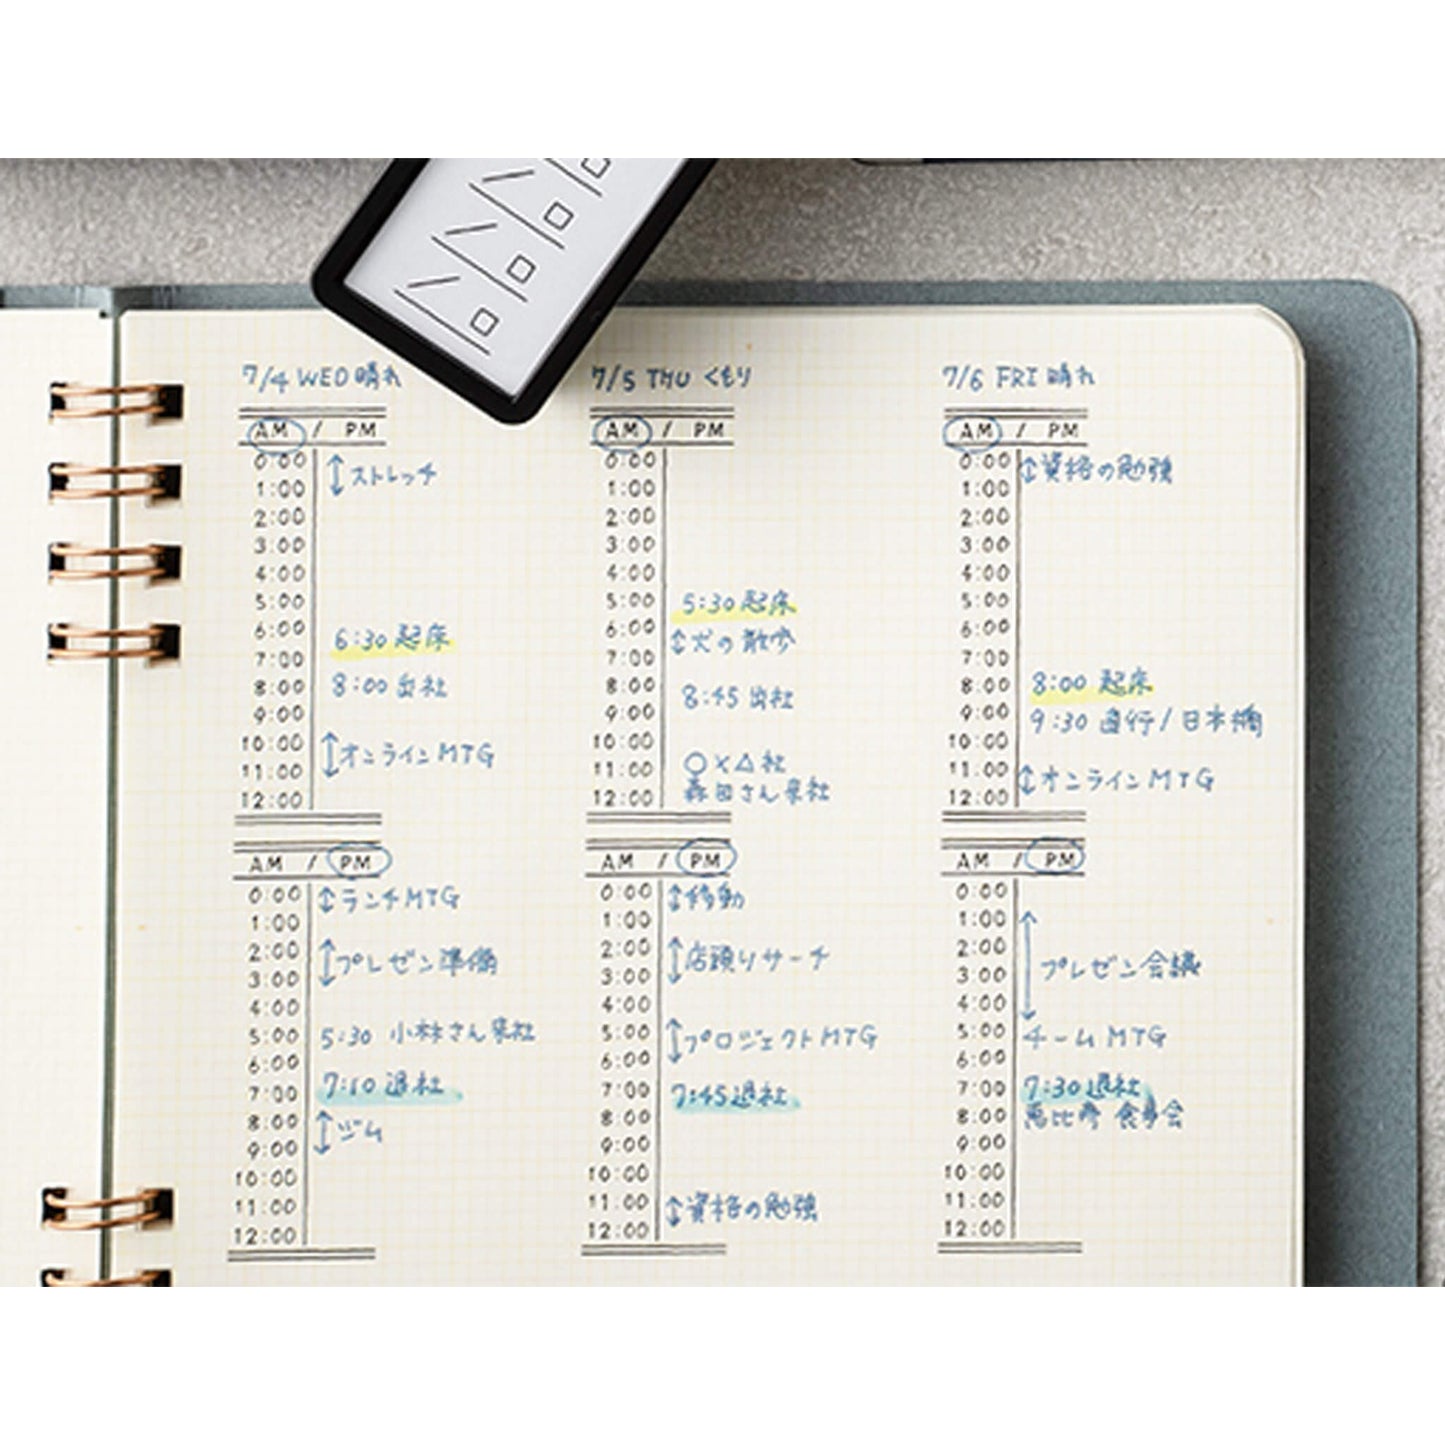 7/4 WED 晴れ
AM / PM
0:00 ストレッチ
1:00
2:00
3:00
4:00
5:00
6:00 6:30 起床
7:00
8:00 8:00 出社
9:00
10:00 オンラインMTG
11:00
12:00
AM / PM
0:00 ランチMTG
1:00
2:00 プレゼン準備
3:00
4:00
5:00 5:30 小林さん来社
6:00
7:00 7:10 退社
8:00 ジム
9:00
10:00
11:00
12:00
7/5 THU くもり
AM / PM
0:00
1:00
2:00
3:00
4:00
5:00 5:30 起床
6:00 犬の散歩
7:00
8:00 8:45 出社
9:00
10:00
11:00 ○×△社
12:00 森田さん来社
AM / PM
0:00 移動
1:00
2:00 店頭リサーチ
3:00
4:00
5:00 プロジェクトMTG
6:00
7:00 7:45 退社
8:00
9:00
10:00
11:00 資格の勉強
12:00
7/6 FRI 晴れ
AM / PM
0:00 資格の勉強
1:00
2:00
3:00
4:00
5:00
6:00
7:00
8:00 8:00 起床
9:00 9:30 直行/日本橋
10:00
11:00 オンラインMTG
12:00
AM / PM
0:00
1:00
2:00
3:00 プレゼン会議
4:00
5:00 チームMTG
6:00
7:00 7:30 退社
8:00 恵比寿 食事会
9:00
10:00
11:00
12:00